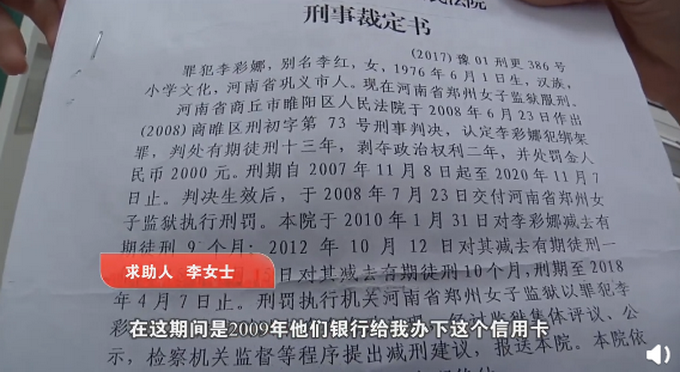 民法院
刑事裁定书
(2017)豫01刑更386号
罪犯李彩娜，别名李红，女，1976年6月1日生，汉族，
小学文化，河南省巩义市人。现在河南省郑州女子监狱服刑。
河南省商丘市睢阳区人民法院于2008年6月23日作出
(2008)商睢区刑初字第 73 号刑事判决，认定李彩娜犯绑架
罪，判处有期徒刑十三年，剥夺政治权利二年，并处罚金人
民币 2000 元。刑期自 2007 年 11 月 8 日起至 2020 年 11 月 7
日止。判决生效后，于 2008 年 7 月 23 日交付河南省郑州女
子监狱执行刑罚。本院于 2010 年 1 月 31 日对李彩娜减去有
期徒刑 9 个月；2012 年 10 月 12 日对其减去有期徒刑一
日对其减去有期徒刑10个月，刑期至2018
年 4 月 7 日止。刑罚执行机关河南省郑州女子监狱以罪犯李
求助人 李女士
在这期间是2009年他们银行给我办下这个信用卡
示，检察机关监督等程序提出减刑建议，报送本院。本院依